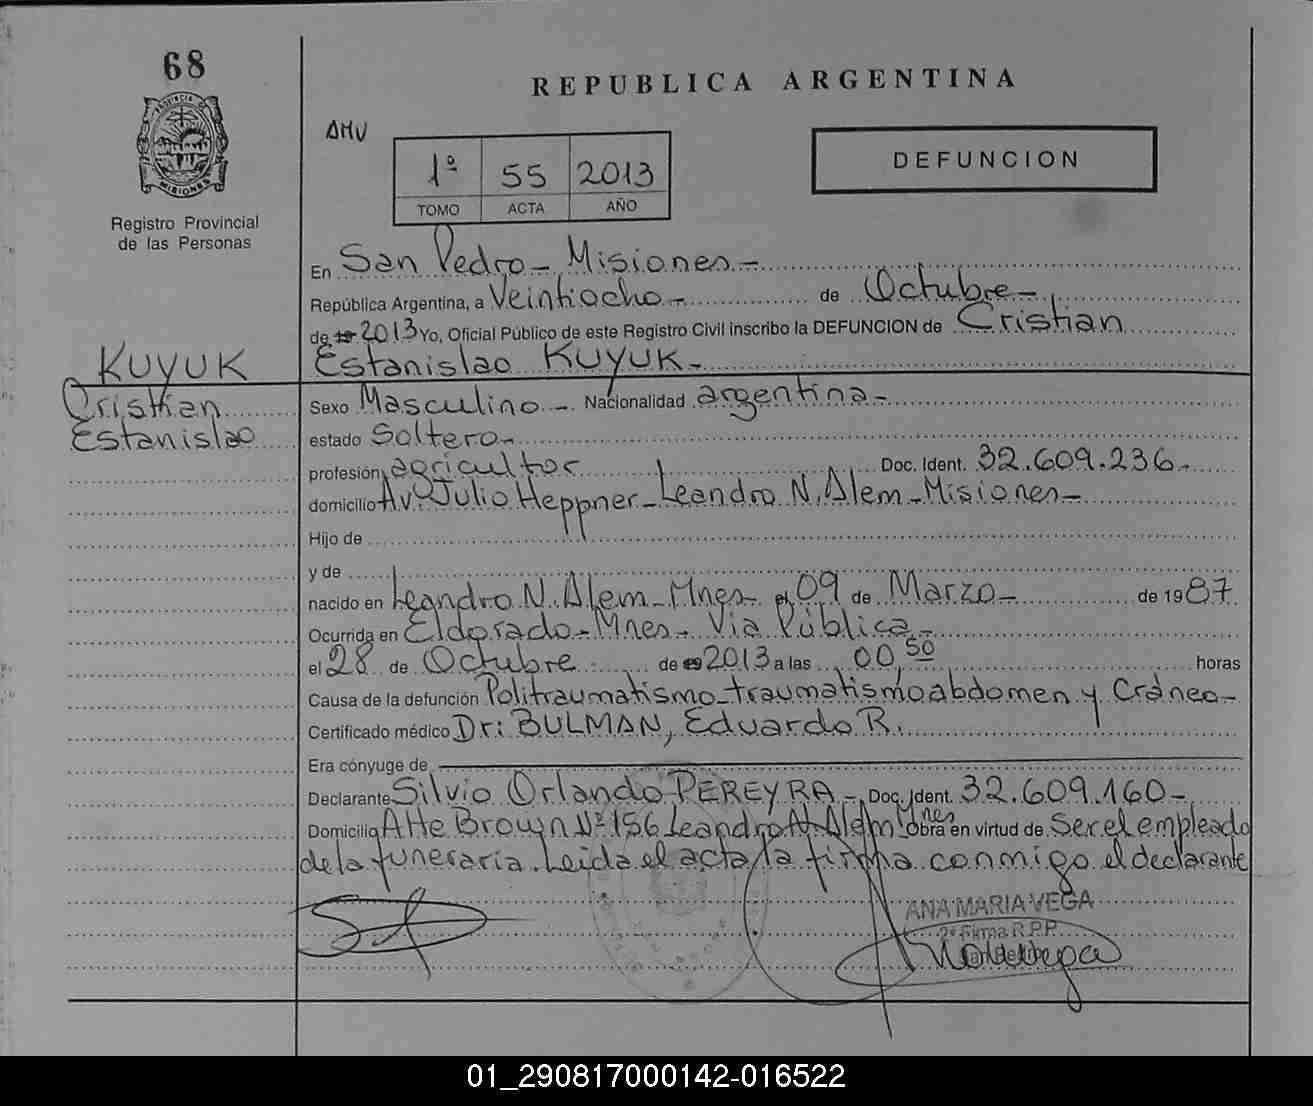 68
REPUBLICA ARGENTINA
PROVINCIA DE
MISIONES
Registro Provincial
de las Personas
AMV
1º 55 2013
TOMO ACTA AÑO
DEFUNCION
En San Pedro - Misiones -
República Argentina, a Veintiocho - de Octubre -
de 19 2013 Yo, Oficial Público de este Registro Civil inscribo la DEFUNCION de Cristian
Estanislao KUYUK -
KUYUK
Cristian
Estanislao
Sexo Masculino - Nacionalidad argentina -
estado Soltero -
profesión agricultor Doc. Ident. 32.609.236 -
domicilio Av. Julio Heppner - Leandro N. Alem - Misiones -
Hijo de
y de
nacido en Leandro N. Alem - Mnes - el 09 de Marzo - de 1987
Ocurrida en Eldorado - Mnes - Via Pública -
el 28 de Octubre de 2013 a las 00,50 horas
Causa de la defunción Politraumatismo - traumatismo abdomen y Cráneo -
Certificado médico Dr: BULMAN, Eduardo R.
Era cónyuge de
Declarante Silvio Orlando PEREYRA - Doc. Ident. 32.609.160 -
Domicilio Alte Brown Nº 156 Leandro N. Alem Mnes Obra en virtud de Ser el empleado
de la funeraria. Leida el acta la firma conmigo el declarante
ANA MARIA VEGA
2ª Firma R.P.P.
01_290817000142-016522